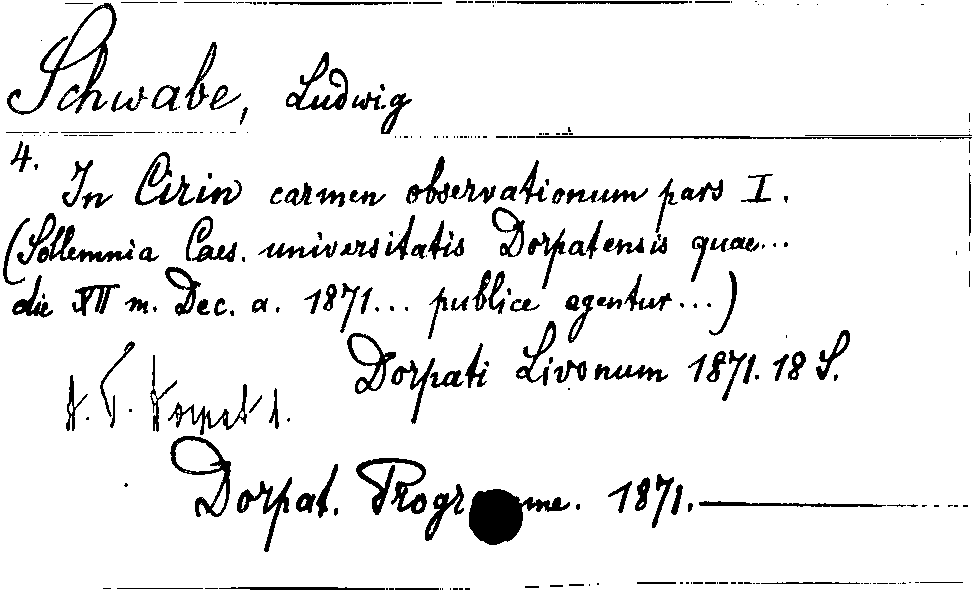 Schwabe, Ludwig
4.
In Cirin carmen observationum pars I.
(Sollemnia Caes. universitatis Dorpatensis quae...
die XII m. Dec. a. 1871... publice agentur...)
Dorpati Livonum 1871. 18 S.
Dorpat 1.
Dorpat. Programme. 1871.